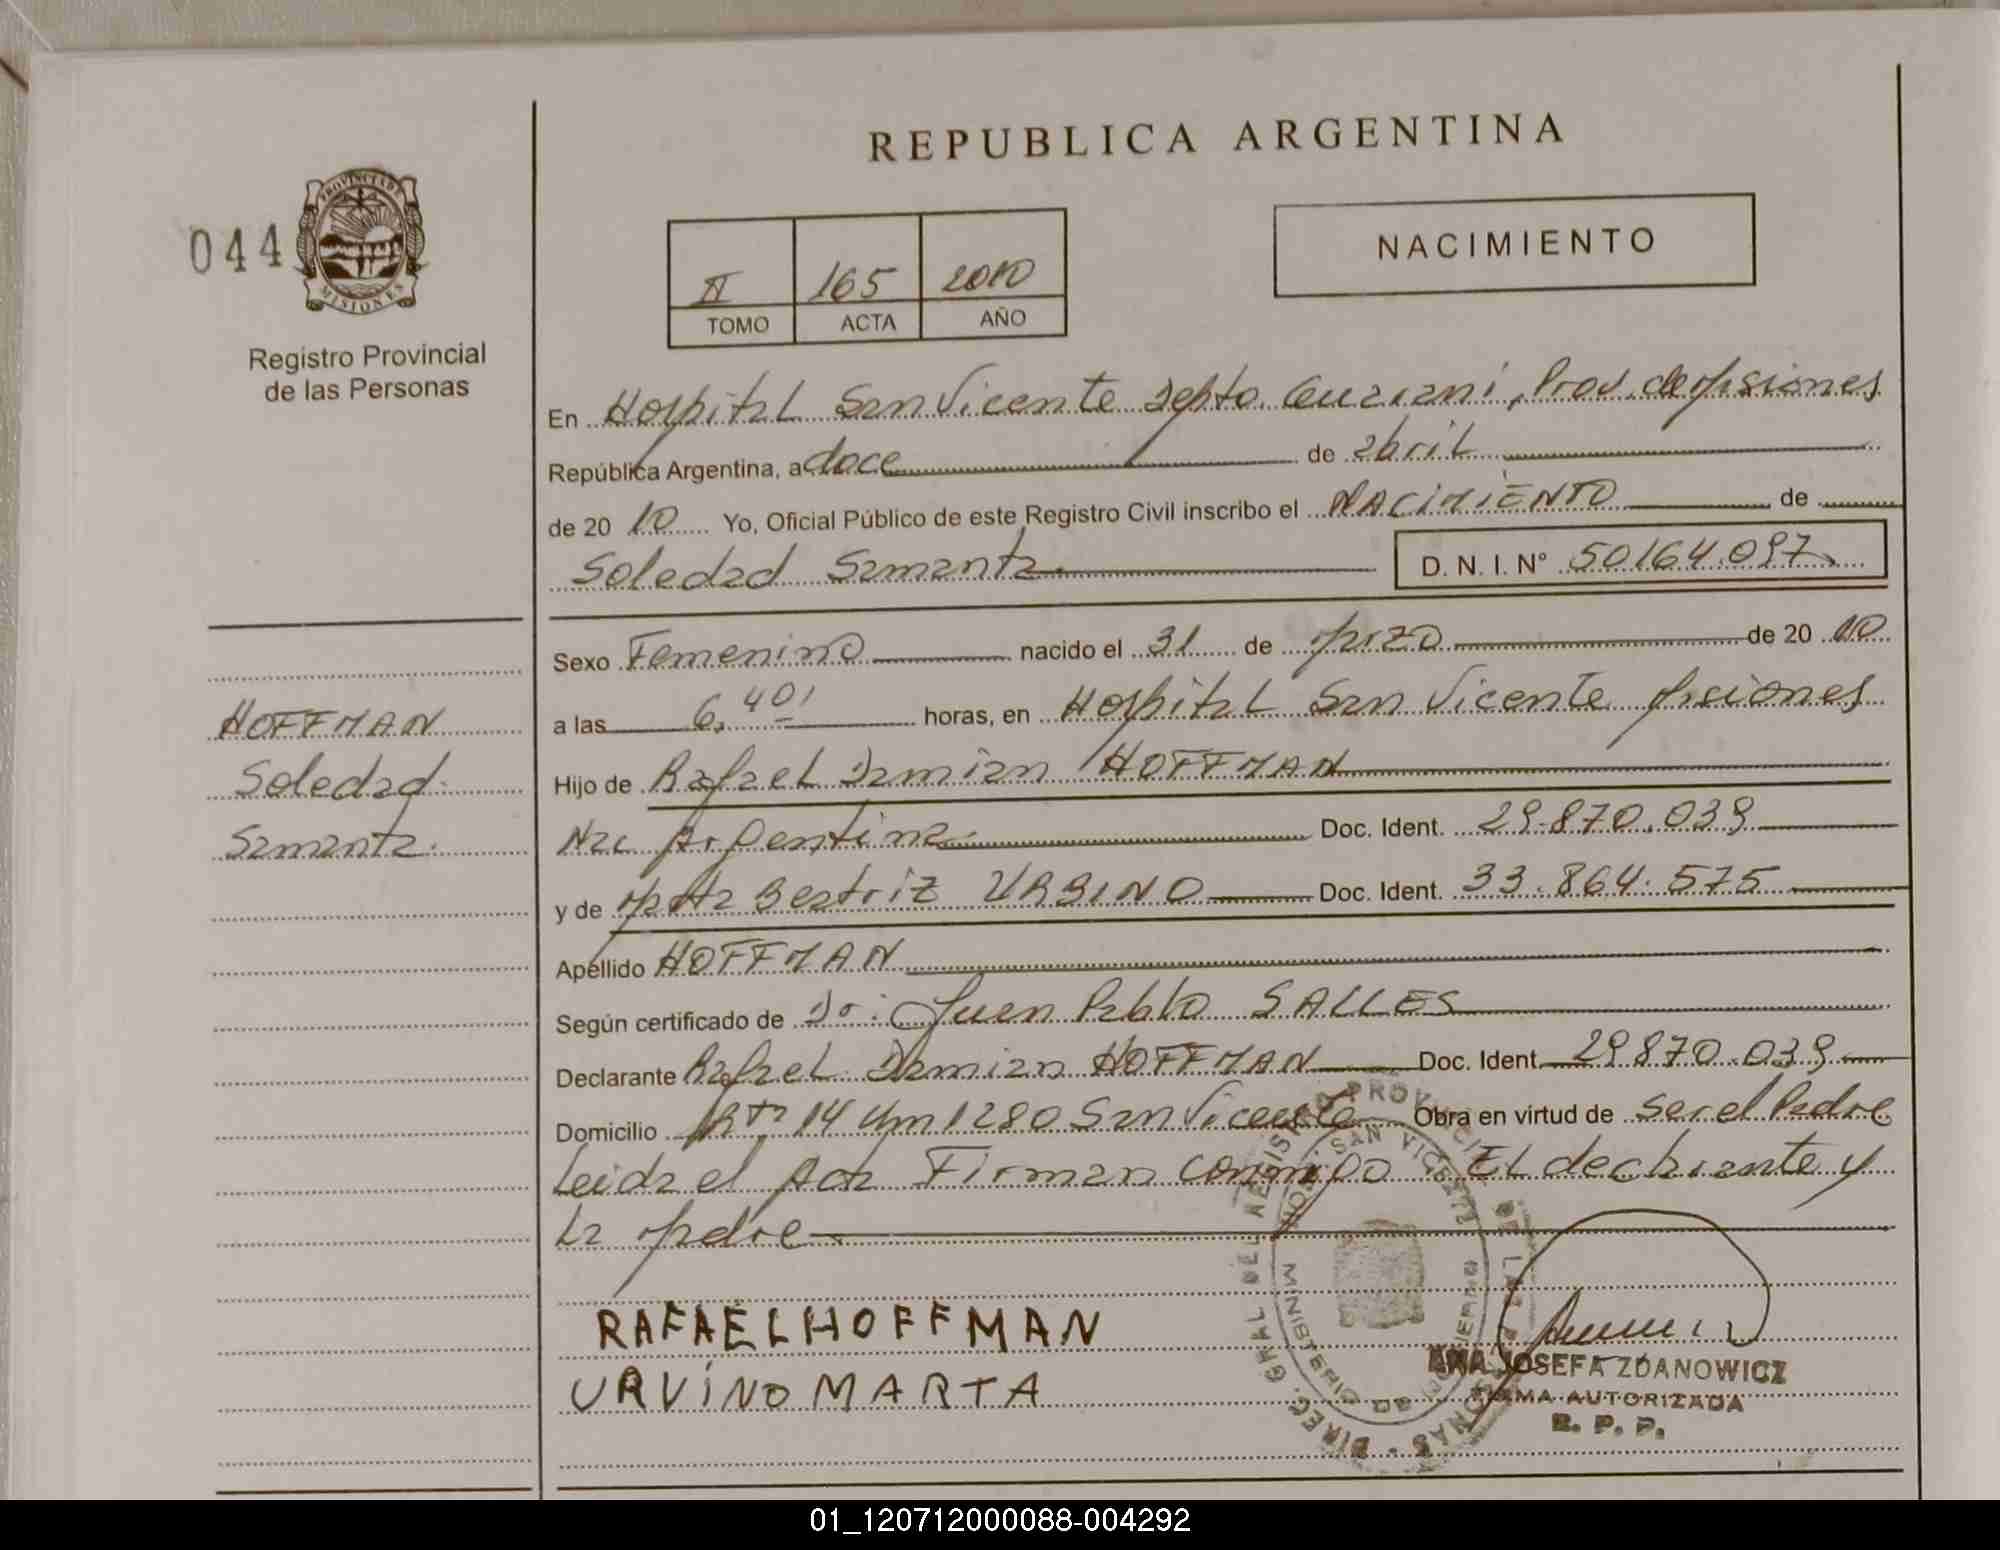 REPUBLICA ARGENTINA
044
PROVINCIA DE
MISIONES
Registro Provincial
de las Personas
II 165 2010
TOMO ACTA AÑO
NACIMIENTO
En Hospital San Vicente Depto. Guarani, Prov. de Misiones
República Argentina, a doce de abril
de 20 10 Yo, Oficial Público de este Registro Civil inscribo el NACIMIENTO de
Soledad Samanta D. N. I. N° 50164.097
Sexo Femenino nacido el 31 de Marzo de 20 10
a las 6,40' horas, en Hospital San Vicente Misiones
Hijo de Rafael Damian HOFFMAN
Nac Argentina Doc. Ident. 29.870.039
y de Marta Beatriz URBINO Doc. Ident. 33.864.575
Apellido HOFFMAN
Según certificado de Dr: Juan Pablo SALLES
Declarante Rafael Damian HOFFMAN Doc. Ident 29870.039
Domicilio Rta 14 Km 1280 San Vicente Obra en virtud de ser el Padre
Leida el Acta Firman conmigo El declarante y
la Madre
HOFFMAN
Soledad
Samanta
RAFAEL HOFFMAN
URVINO MARTA
DIREC. GRAL DEL REGISTRO PROVINCIAL DE LAS PERSONAS
HOSP. SAN VICENTE
MINISTERIO DE GOBIERNO
ANA JOSEFA ZDANOWICZ
FIRMA AUTORIZADA
R. P. P.
01_120712000088-004292